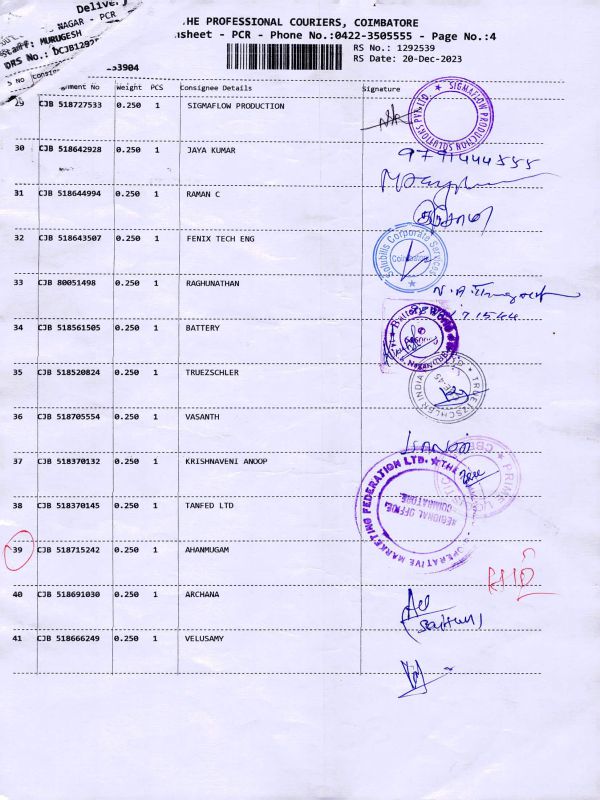 Delivery
NAGAR - PCR
Staff: MURUGESH
DRS No.: DCJB1292
THE PROFESSIONAL COURIERS, COIMBATORE
nsheet - PCR - Phone No.:0422-3505555 - Page No.:4
RS No.: 1292539
RS Date: 20-Dec-2023
33904
S No Consig
nment No Weight PCS Consignee Details Signature
29 CJB 518727533 0.250 1 SIGMAFLOW PRODUCTION
SIGMAFLOW PRODUCTION SOLUTIONS PVT LTD
30 CJB 518642928 0.250 1 JAYA KUMAR
31 CJB 518644994 0.250 1 RAMAN C
32 CJB 518643507 0.250 1 FENIX TECH ENG
Solubills Corporate Services
Coimbatore
33 CJB 80051498 0.250 1 RAGHUNATHAN
34 CJB 518561505 0.250 1 BATTERY
Battery World
35 CJB 518520824 0.250 1 TRUEZSCHLER
TRUETZSCHLER INDIA
36 CJB 518705554 0.250 1 VASANTH
37 CJB 518370132 0.250 1 KRISHNAVENI ANOOP
PRIME
38 CJB 518370145 0.250 1 TANFED LTD
OPERATIVE MARKETING FEDERATION LTD. THE
REGIONAL OFFICE,
COIMBATORE.
39 CJB 518715242 0.250 1 AHANMUGAM
40 CJB 518691030 0.250 1 ARCHANA
41 CJB 518666249 0.250 1 VELUSAMY